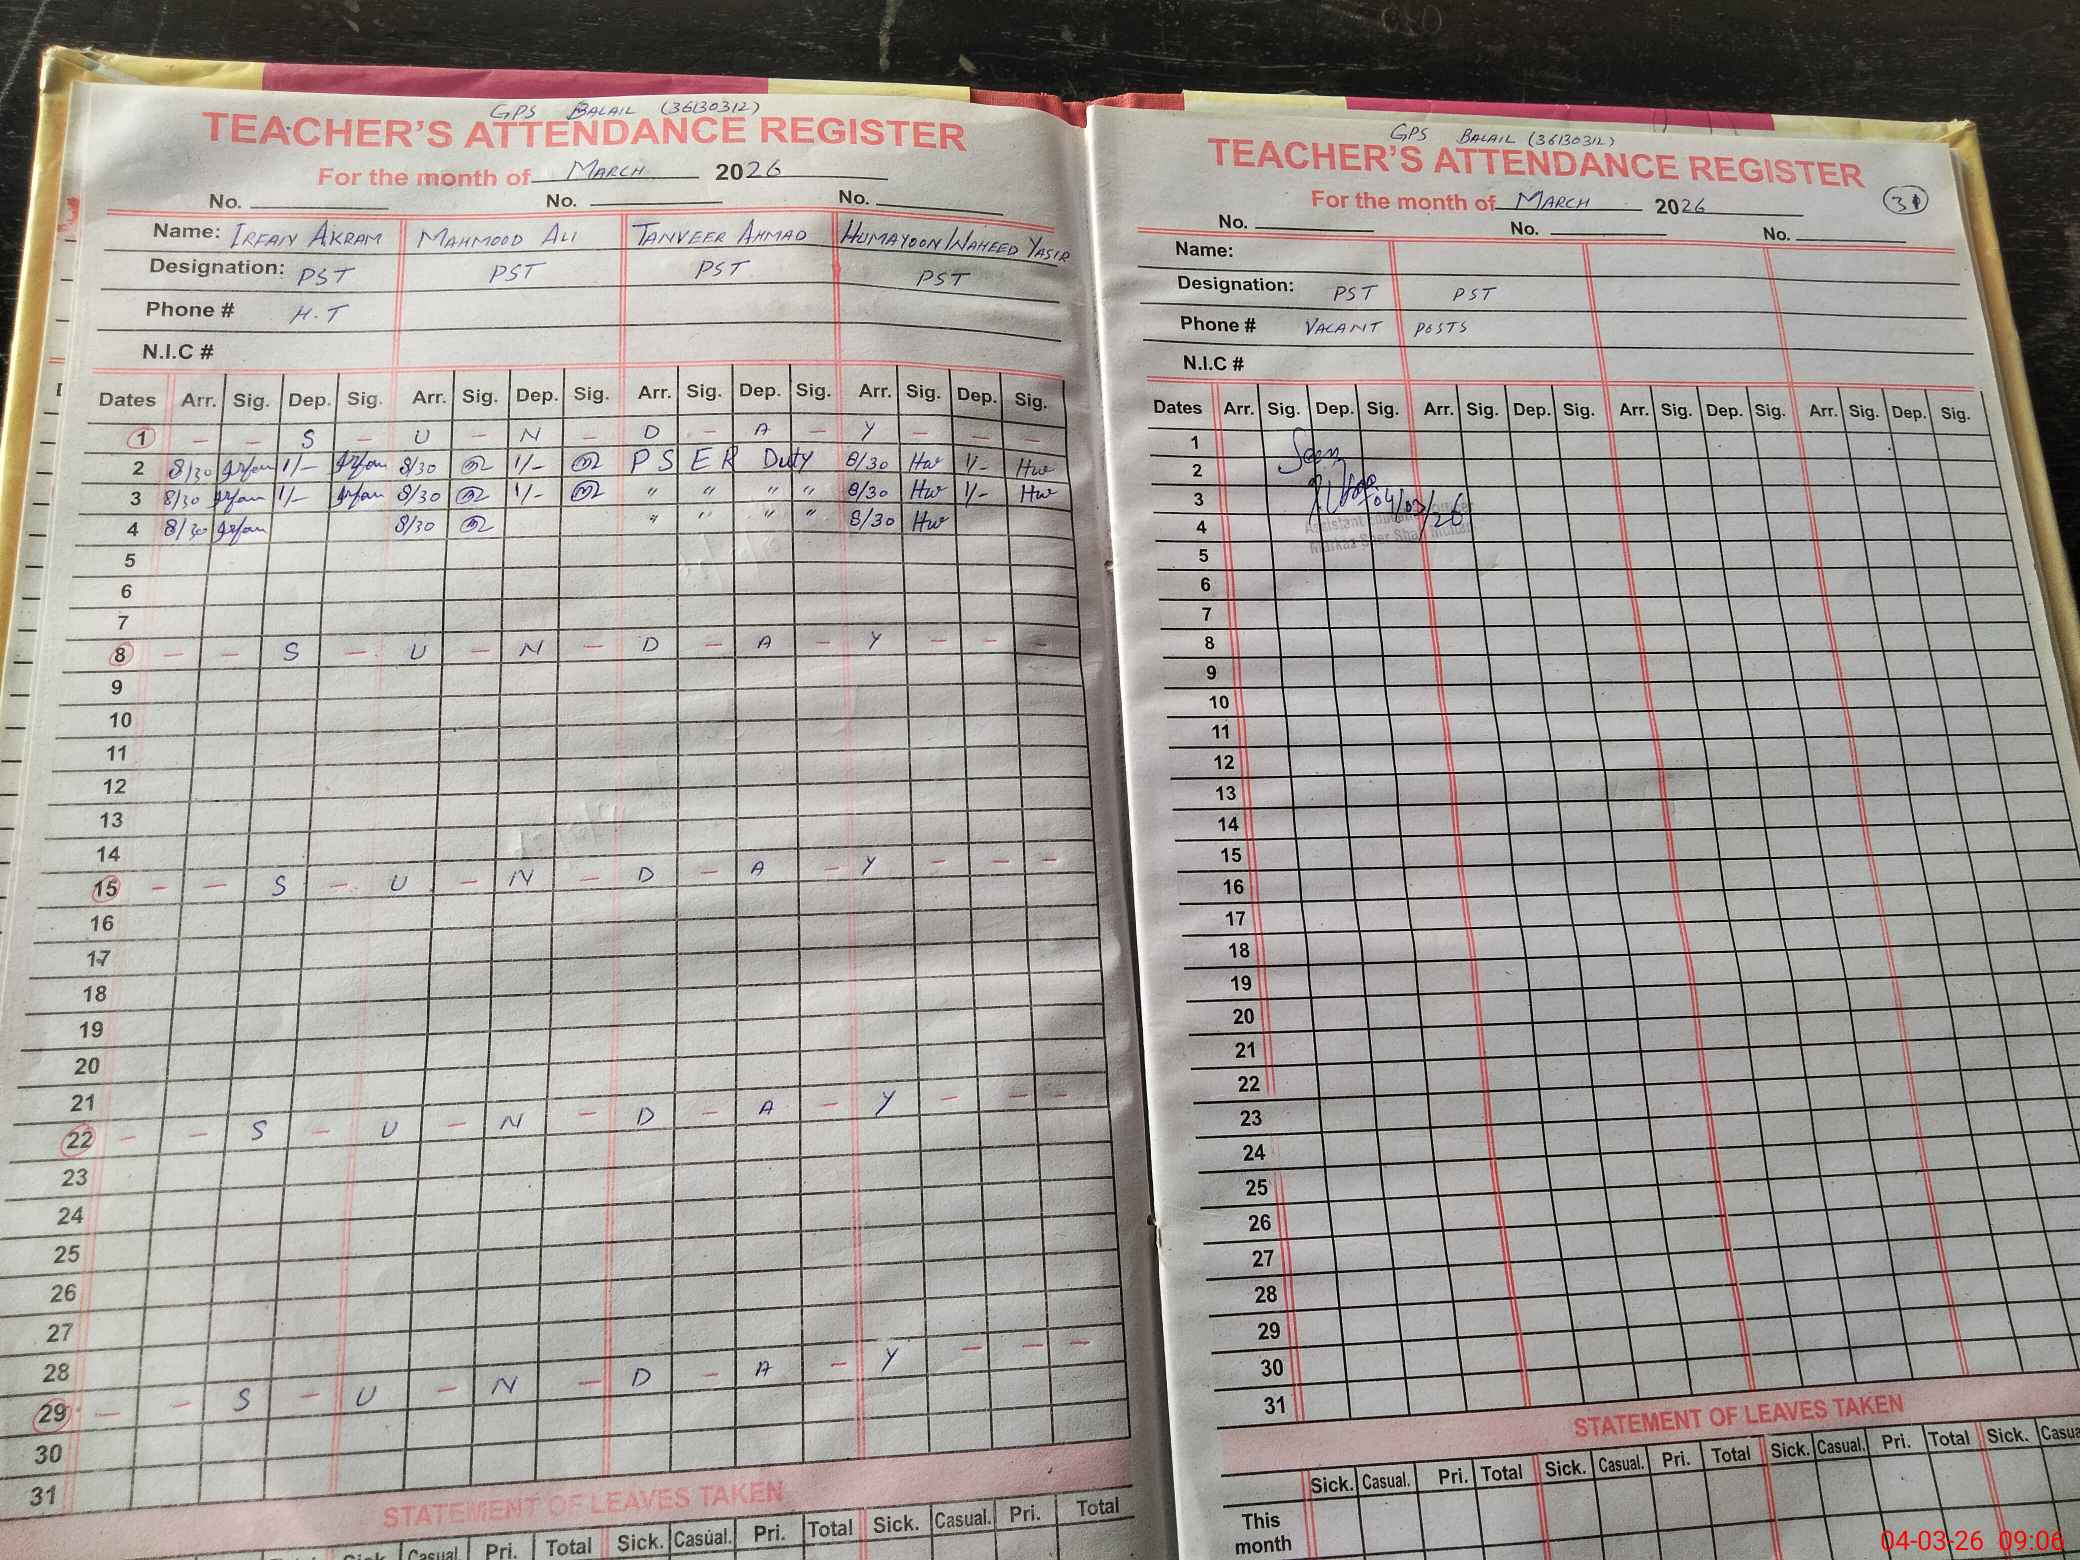 GPS BALAIL (36130312)
TEACHER'S ATTENDANCE REGISTER
For the month of MARCH 2026
No. No. No.
Name: IRFAN AKRAM MAHMOOD ALI TANVEER AHMAD HUMAYOON WAHEED YASIR
Designation: PST PST PST PST
Phone # H.T
N.I.C #
Dates Arr. Sig. Dep. Sig. Arr. Sig. Dep. Sig. Arr. Sig. Dep. Sig. Arr. Sig. Dep. Sig.
1 - - S - U - N - D - A - Y - - -
2 8/30 Irfan 1/- Irfan 8/30 1/- PSER Duty 8/30 Hw 1/- Hw
3 8/30 Irfan 1/- Irfan 8/30 1/- " " " " 8/30 Hw 1/- Hw
4 8/30 Irfan 8/30 " " " " 8/30 Hw
5
6
7
8 - - S - U - N - D - A - Y - - -
9
10
11
12
13
14
15 - - S - U - N - D - A - Y - - -
16
17
18
19
20
21
22 - - S - U - N - D - A - Y - - -
23
24
25
26
27
28
29 - - S - U - N - D - A - Y - - -
30
31
STATEMENT OF LEAVES TAKEN
Casual Pri. Total Sick. Casual. Pri. Total Sick. Casual. Pri. Total
GPS BALAIL (36130312)
TEACHER'S ATTENDANCE REGISTER
For the month of MARCH 2026 31
No. No. No.
Name:
Designation: PST PST
Phone # VACANT POSTS
N.I.C #
Dates Arr. Sig. Dep. Sig. Arr. Sig. Dep. Sig. Arr. Sig. Dep. Sig. Arr. Sig. Dep. Sig.
1
2 Seen
3 04/03/26
4 Assistant Education
5 Markaz Sher Shah Multan
6
7
8
9
10
11
12
13
14
15
16
17
18
19
20
21
22
23
24
25
26
27
28
29
30
31
STATEMENT OF LEAVES TAKEN
Sick. Casual. Pri. Total Sick. Casual. Pri. Total Sick. Casual. Pri. Total Sick. Casua
This
month
04-03-26 09:06